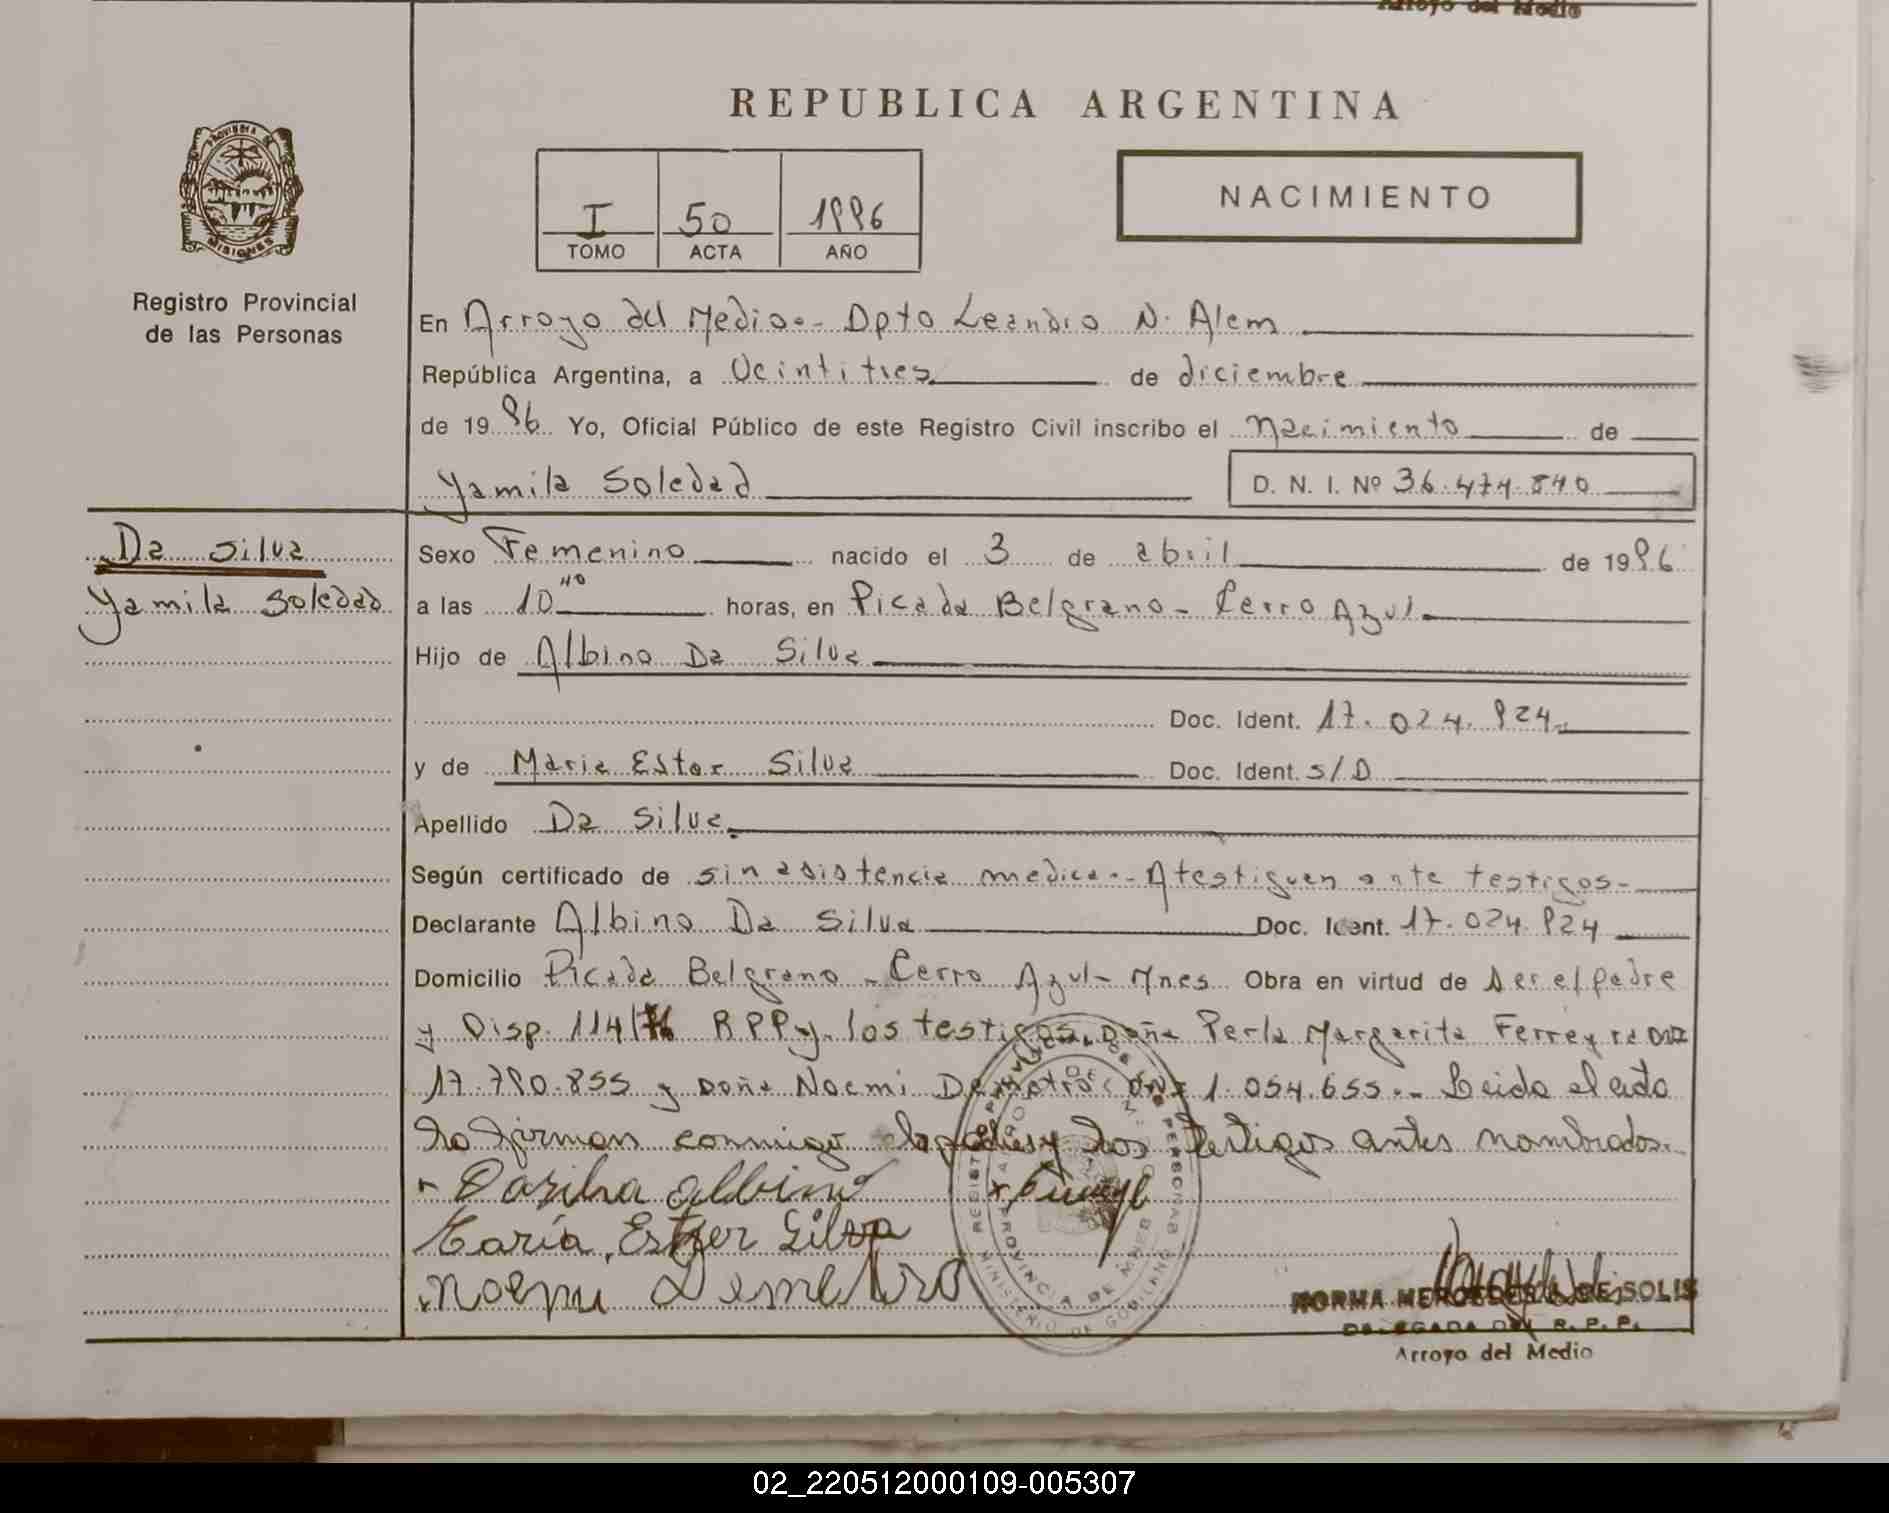 Arroyo del Medio
REPUBLICA ARGENTINA
PROVINCIA DE
MISIONES
Registro Provincial
de las Personas
I 50 1996
TOMO ACTA AÑO
NACIMIENTO
En Arroyo del Medio.- Dpto Leandro N. Alem
República Argentina, a Veintitres de diciembre
de 1996 Yo, Oficial Público de este Registro Civil inscribo el Nacimiento de
Yamila Soledad D. N. I. Nº 36.474.840
Da Silva
Yamila Soledad
Sexo Femenino nacido el 3 de abril de 1996
a las 10 40 horas, en Picada Belgrano - Cerro Azul
Hijo de Albino Da Silva
Doc. Ident. 17.024.924
y de Maria Ester Silva Doc. Ident. S/D
Apellido Da Silva
Según certificado de sin asistencia medica.- Atestiguen ante testigos-
Declarante Albino Da Silva Doc. Ident. 17.024.924
Domicilio Picada Belgrano - Cerro Azul - Mnes Obra en virtud de ser el padre
y Disp. 114/76 R P P y los testigos Doña Perla Margarita Ferreyra DNI
17.790.855 y Doña Noemi Demetro DNI 1.054.655.- Leida el acta
la firman conmigo los padres y los testigos antes nombrados.
Dasilva Albino
María Ester Silva
Noemi Demetro
REGISTRO PROVINCIAL DE LAS PERSONAS
PROVINCIA DE MNES
MINISTERIO DE GOBIERNO
NORMA MERCEDES DE SOLIS
DELEGADA DEL R. P. P.
Arroyo del Medio
02_220512000109-005307